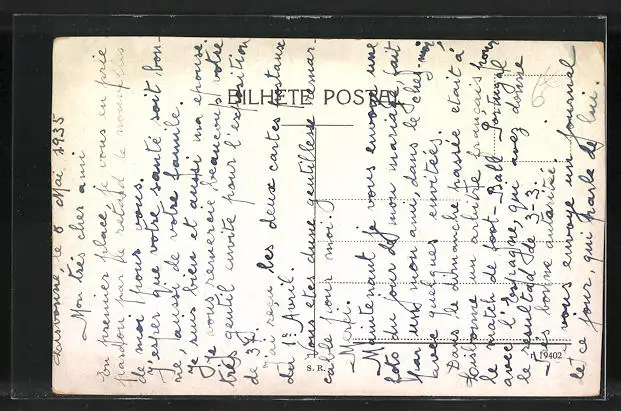 Lisbonne le 8 Mai 1935
Mon très cher ami
En premier place je vous en prie
pardon par le retard de nouvelles
de moi pour vous.
J'esper que votre santé soit bon-
ne, aussi de votre famile.
Je suis bien et aussi ma epouse.
Je vous remercie beaucoup votre
très gentil invite pour l'exposition
de 37.
J'ai reçu les deux cartes postaux
du 1er Avril.
Vous etes d'une gentillesse remar-
cable pour moi.
Merci.
Maintenant je vous envoye une
foto du jour de mon mariage fait
par un mon ami, dans le chez-moi
avec quelques invitées.
Dans le dimanche passée etait à
Lisbonne un arbitre français pour
le match de foot-Ball Portugal
avec l'Espagne, qui avez donné
le resultad de 3-3.
bonne autorité.
vous envoye un journal
de ce jour, qui parle de lui.
BILHETE POSTAL
S. R.
19402